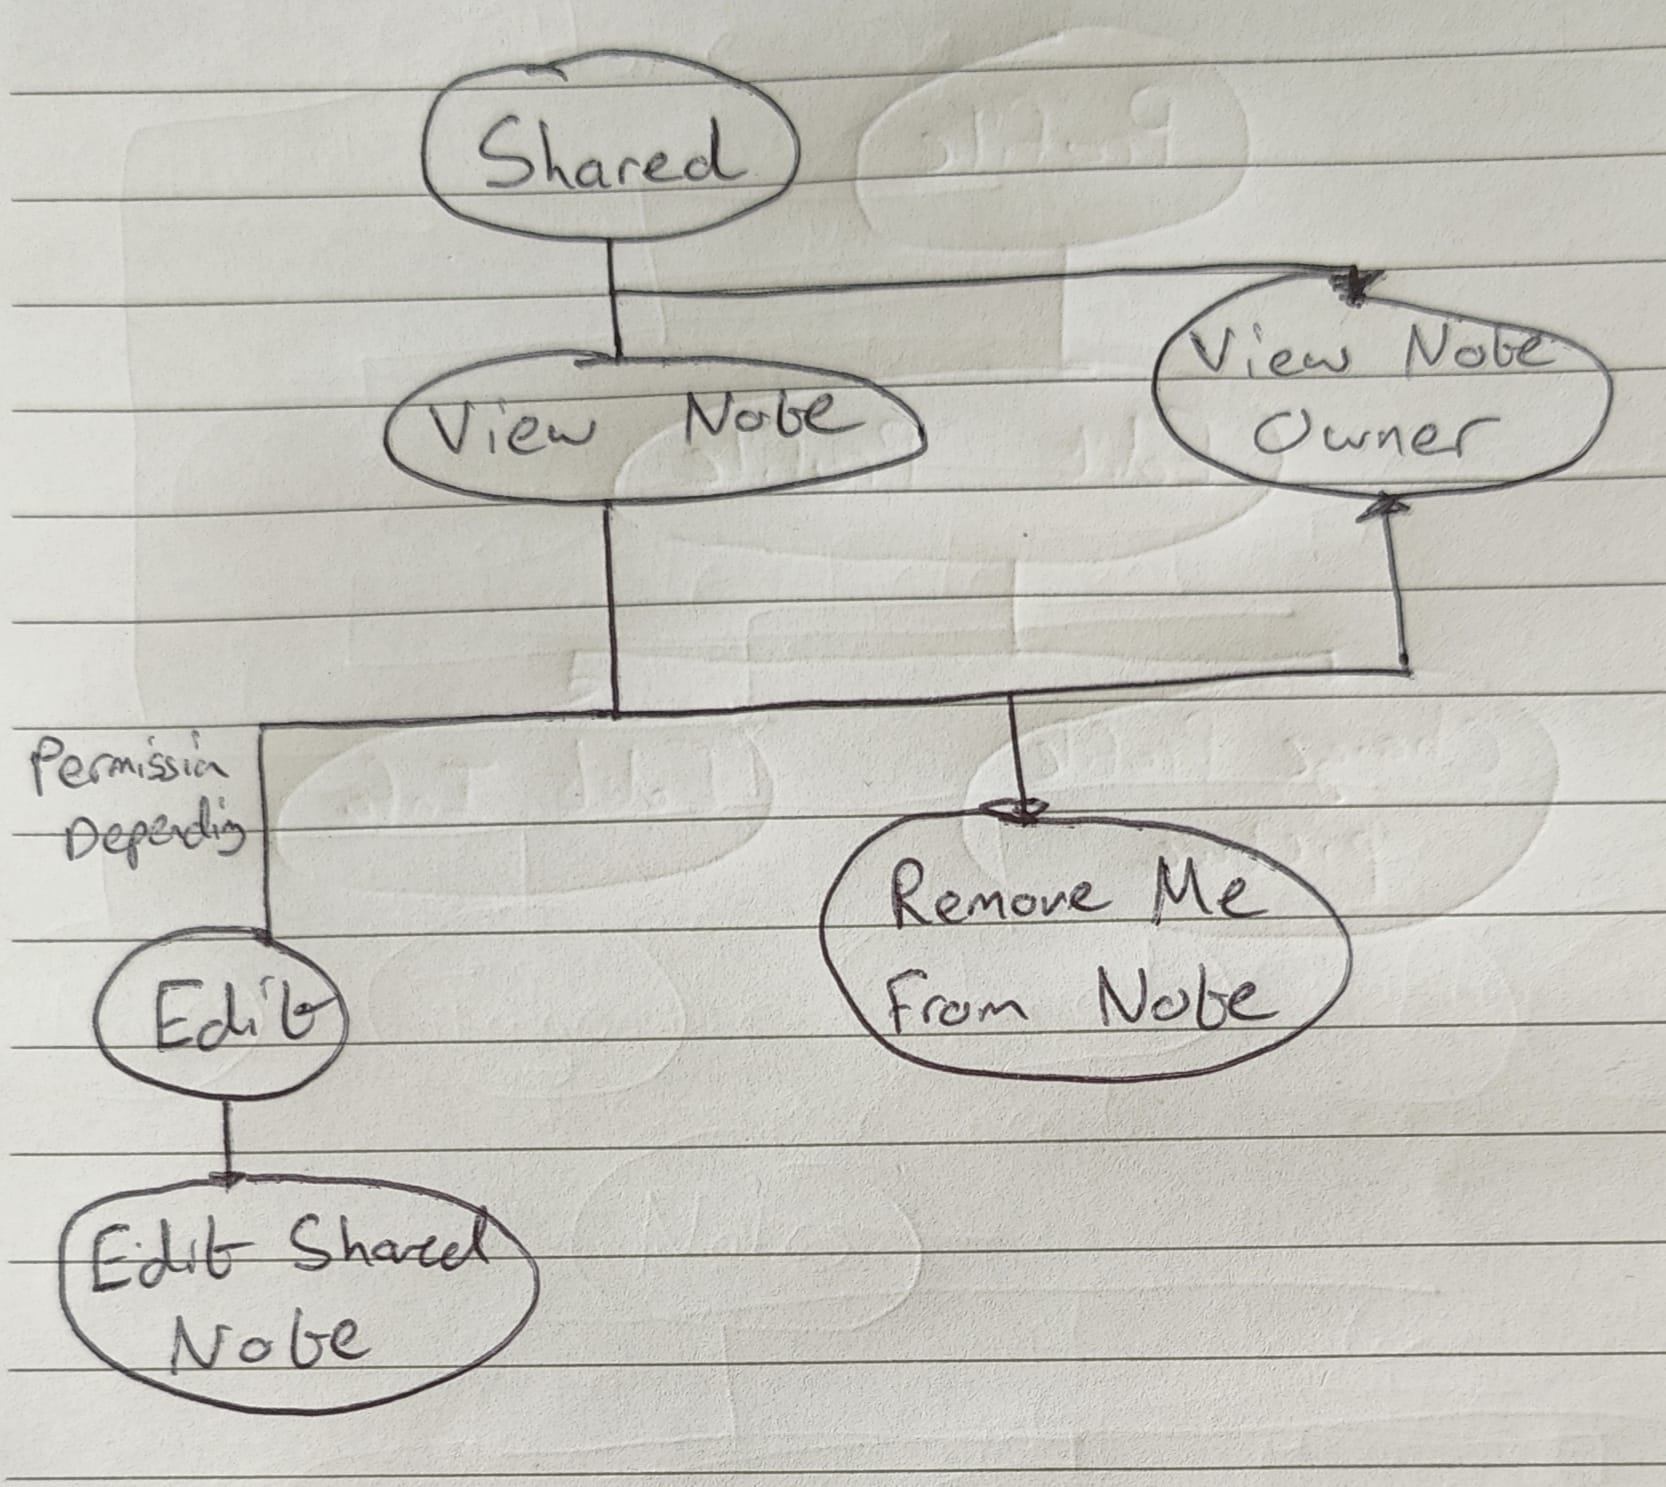 Shared
View Note
View Note
Owner
Permission
Depending
Remove Me
From Note
Edit
Edit Shared
Note